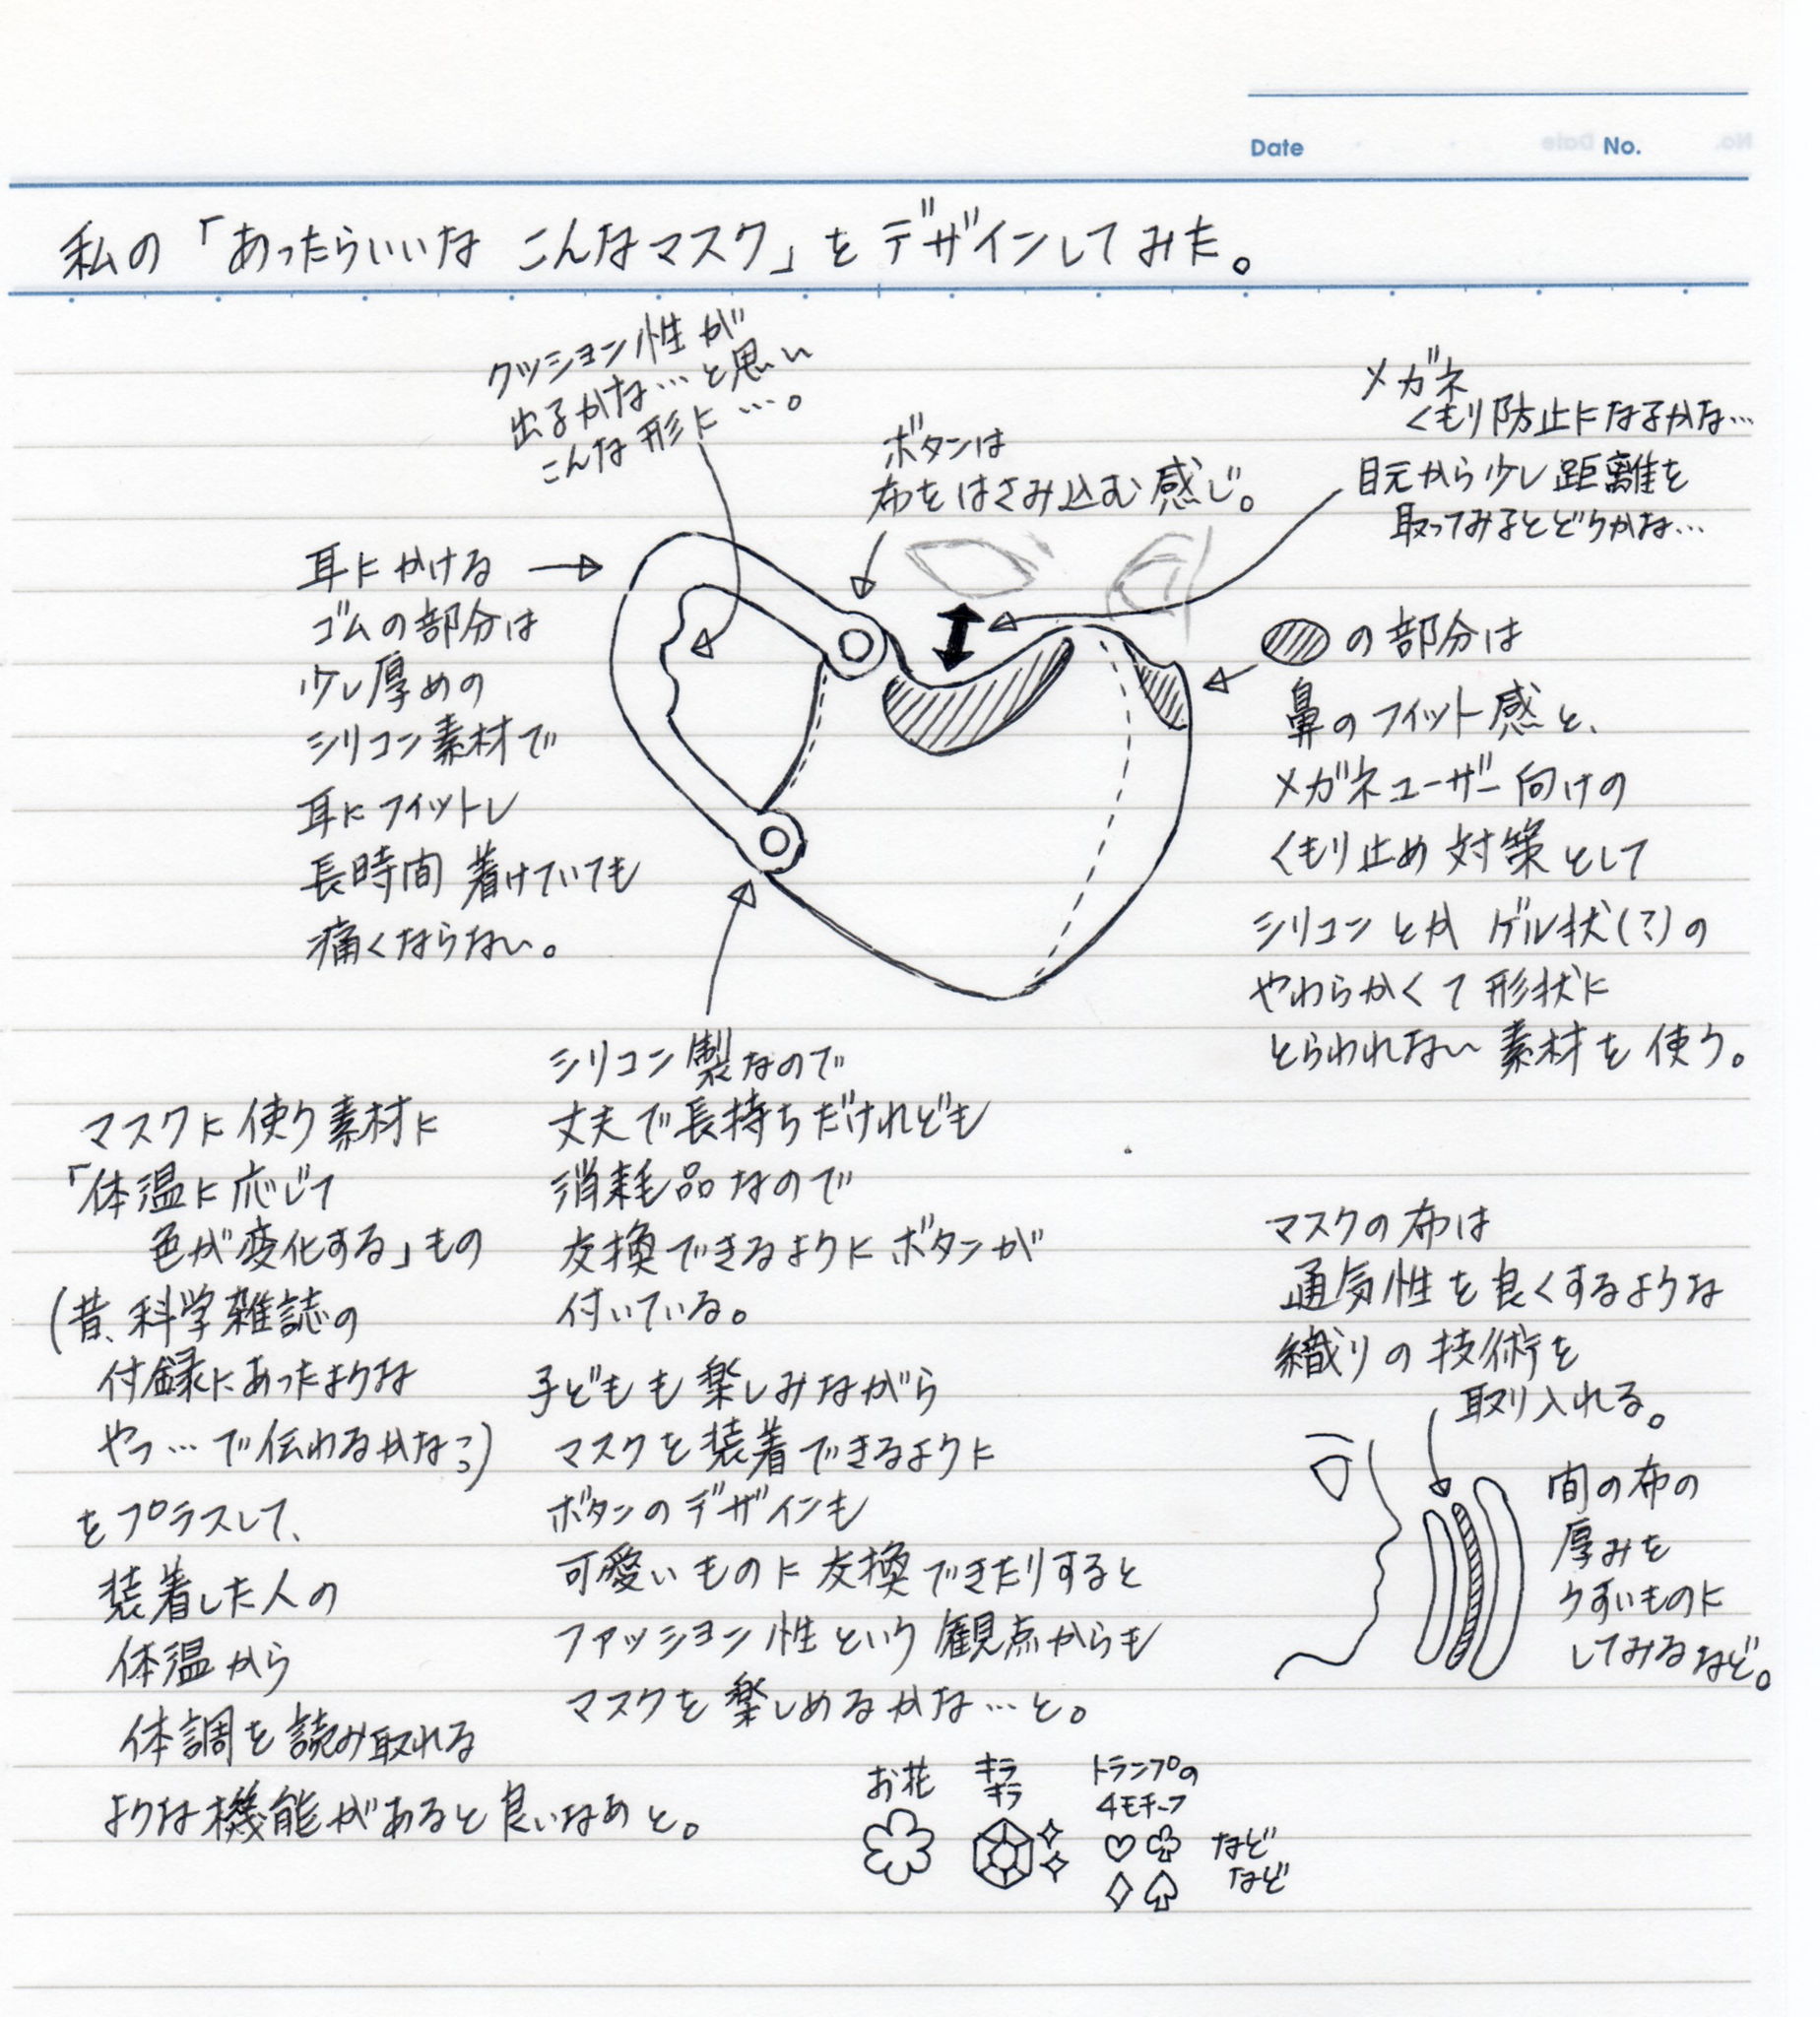 Date No.
私の「あったらいいな こんなマスク」をデザインしてみた。
クッション性が
出るかな…と思い
こんな形に…。
ボタンは
布をはさみ込む感じ。
メガネ
くもり防止になるかな…
目元から少し距離を
取ってみるとどうかな…
耳にかける
ゴムの部分は
少し厚めの
シリコン素材で
耳にフィットし
長時間着けていても
痛くならない。
の部分は
鼻のフィット感と、
メガネユーザー向けの
くもり止め対策として
シリコンとかゲル状(?)の
やわらかくて形状に
とらわれない素材を使う。
シリコン製なので
丈夫で長持ちだけれども
消耗品なので
交換できるようにボタンが
付いている。
子どもも楽しみながら
マスクを装着できるように
ボタンのデザインも
可愛いものに交換できたりすると
ファッション性という観点からも
マスクを楽しめるかな…と。
お花
キラ
キラ
トランプの
4モチーフ
など
など
マスクに使う素材に
「体温に応じて
色が変化する」もの
(昔、科学雑誌の
付録にあったような
やつ…で伝わるかな?)
をプラスして、
装着した人の
体温から
体調を読み取れる
ような機能があると良いなあと。
マスクの布は
通気性を良くするような
織りの技術を
取り入れる。
間の布の
厚みを
うすいものに
してみるなど。